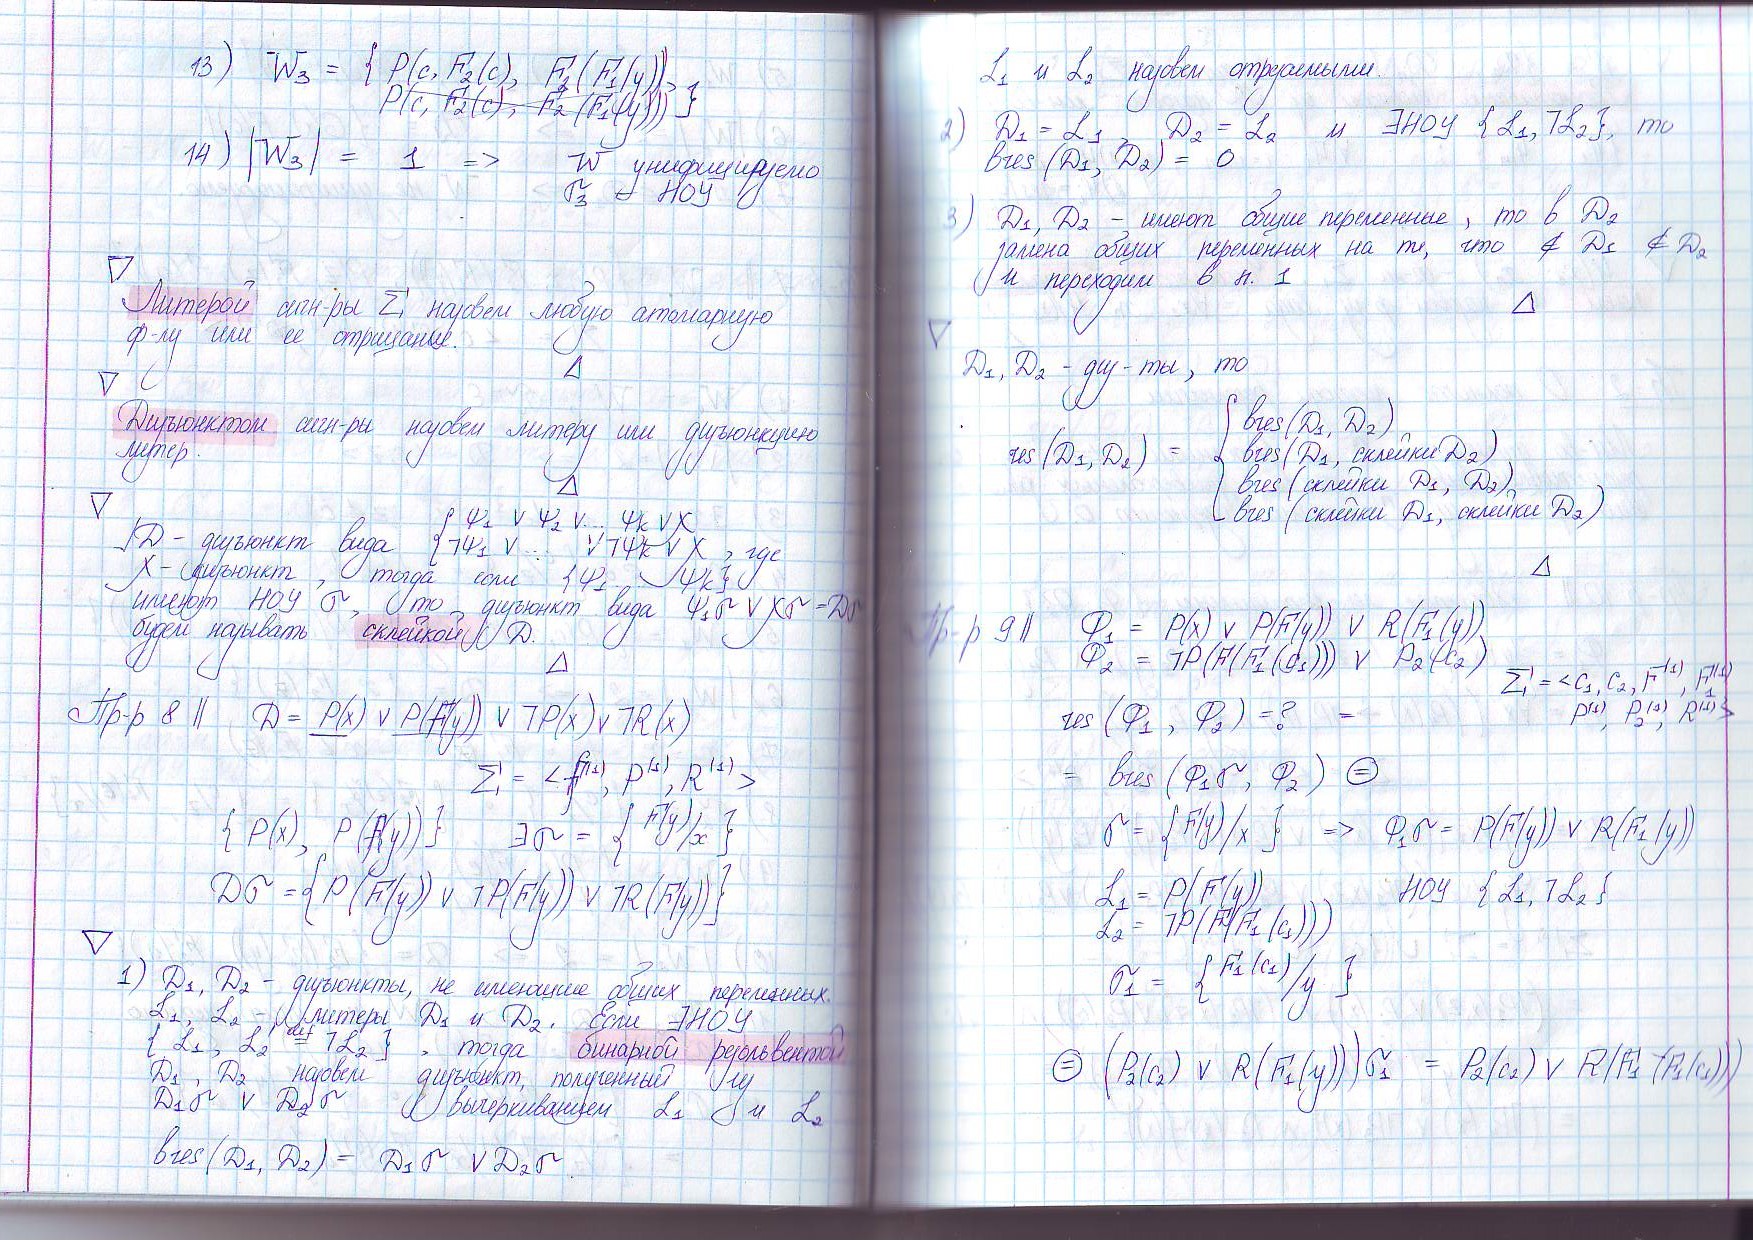 13) W₃ = { P(c, F₂(c), F₂(F₁(y))),
P(c, F₂(c), F₂(F₁(y))) }
14) |W₃| = 1 => W унифицируемо
σ₃ - НОУ
▽
Литерой сигн-ры Σ назовем любую атомарную
ф-лу или ее отрицание.
△
▽
Дизъюнктом сигн-ры назовем литеру или дизъюнкцию
литер.
△
▽
D - дизъюнкт вида { ψ₁ ∨ ψ₂ ∨ ... ψk ∨ X
¬ψ₁ ∨ ... ∨ ¬ψk ∨ X , где
X - дизъюнкт, тогда если {ψ₁ ... ψk}
имеют НОУ σ, то дизъюнкт вида ψ₁σ ∨ Xσ = Dσ
будем называть склейкой D.
△
Пр-р 8 || D = P(x) ∨ P(F(y)) ∨ ¬P(x) ∨ ¬R(x)
Σ = <F⁽¹⁾, P⁽¹⁾, R⁽¹⁾>
{ P(x), P(F(y)) } ∃σ = { F(y)/x }
Dσ = { P(F(y)) ∨ ¬P(F(y)) ∨ ¬R(F(y)) }
▽
1) D₁, D₂ - дизъюнкты, не имеющие общих переменных.
L₁, L₂ - литеры D₁ и D₂. Если ∃НОУ
{ L₁, L₂' ≝ ¬L₂ }, тогда бинарной резольвентой
D₁, D₂ назовем дизъюнкт, полученный из
D₁σ ∨ D₂σ вычеркиванием L₁ и L₂
bres(D₁, D₂) = D₁σ ∨ D₂σ
L₁ и L₂ назовем отрезаемыми.
2) D₁ = L₁, D₂ = L₂ и ∃НОУ {L₁, ¬L₂}, то
bres(D₁, D₂) = 0
3) D₁, D₂ - имеют общие переменные, то в D₂
замена общих переменных на те, что ∉ D₁ ∉ D₂
и переходим в п. 1
△
▽
D₁, D₂ - диз-ты, то
res(D₁, D₂) = { bres(D₁, D₂)
bres(D₁, склейки D₂)
bres(склейки D₁, D₂)
bres(склейки D₁, склейки D₂)
△
Пр-р 9 || Φ₁ = P(x) ∨ P(F(y)) ∨ R(F₁(y))
Φ₂ = ¬P(F(F₁(c₁))) ∨ P₂(c₂)
Σ = <c₁, c₂, F⁽¹⁾, F₁⁽¹⁾
P⁽¹⁾, P₂⁽¹⁾, R⁽¹⁾>
res(Φ₁, Φ₂) = ? =
= bres(Φ₁σ, Φ₂) ⊜
σ = { F(y)/x } => Φ₁σ = P(F(y)) ∨ R(F₁(y))
L₁ = P(F(y)) НОУ {L₁, ¬L₂}
L₂ = ¬P(F(F₁(c₁)))
σ₁ = { F₁(c₁)/y }
⊜ (P₂(c₂) ∨ R(F₁(y)))σ₁ = P₂(c₂) ∨ R(F₁(F₁(c₁)))